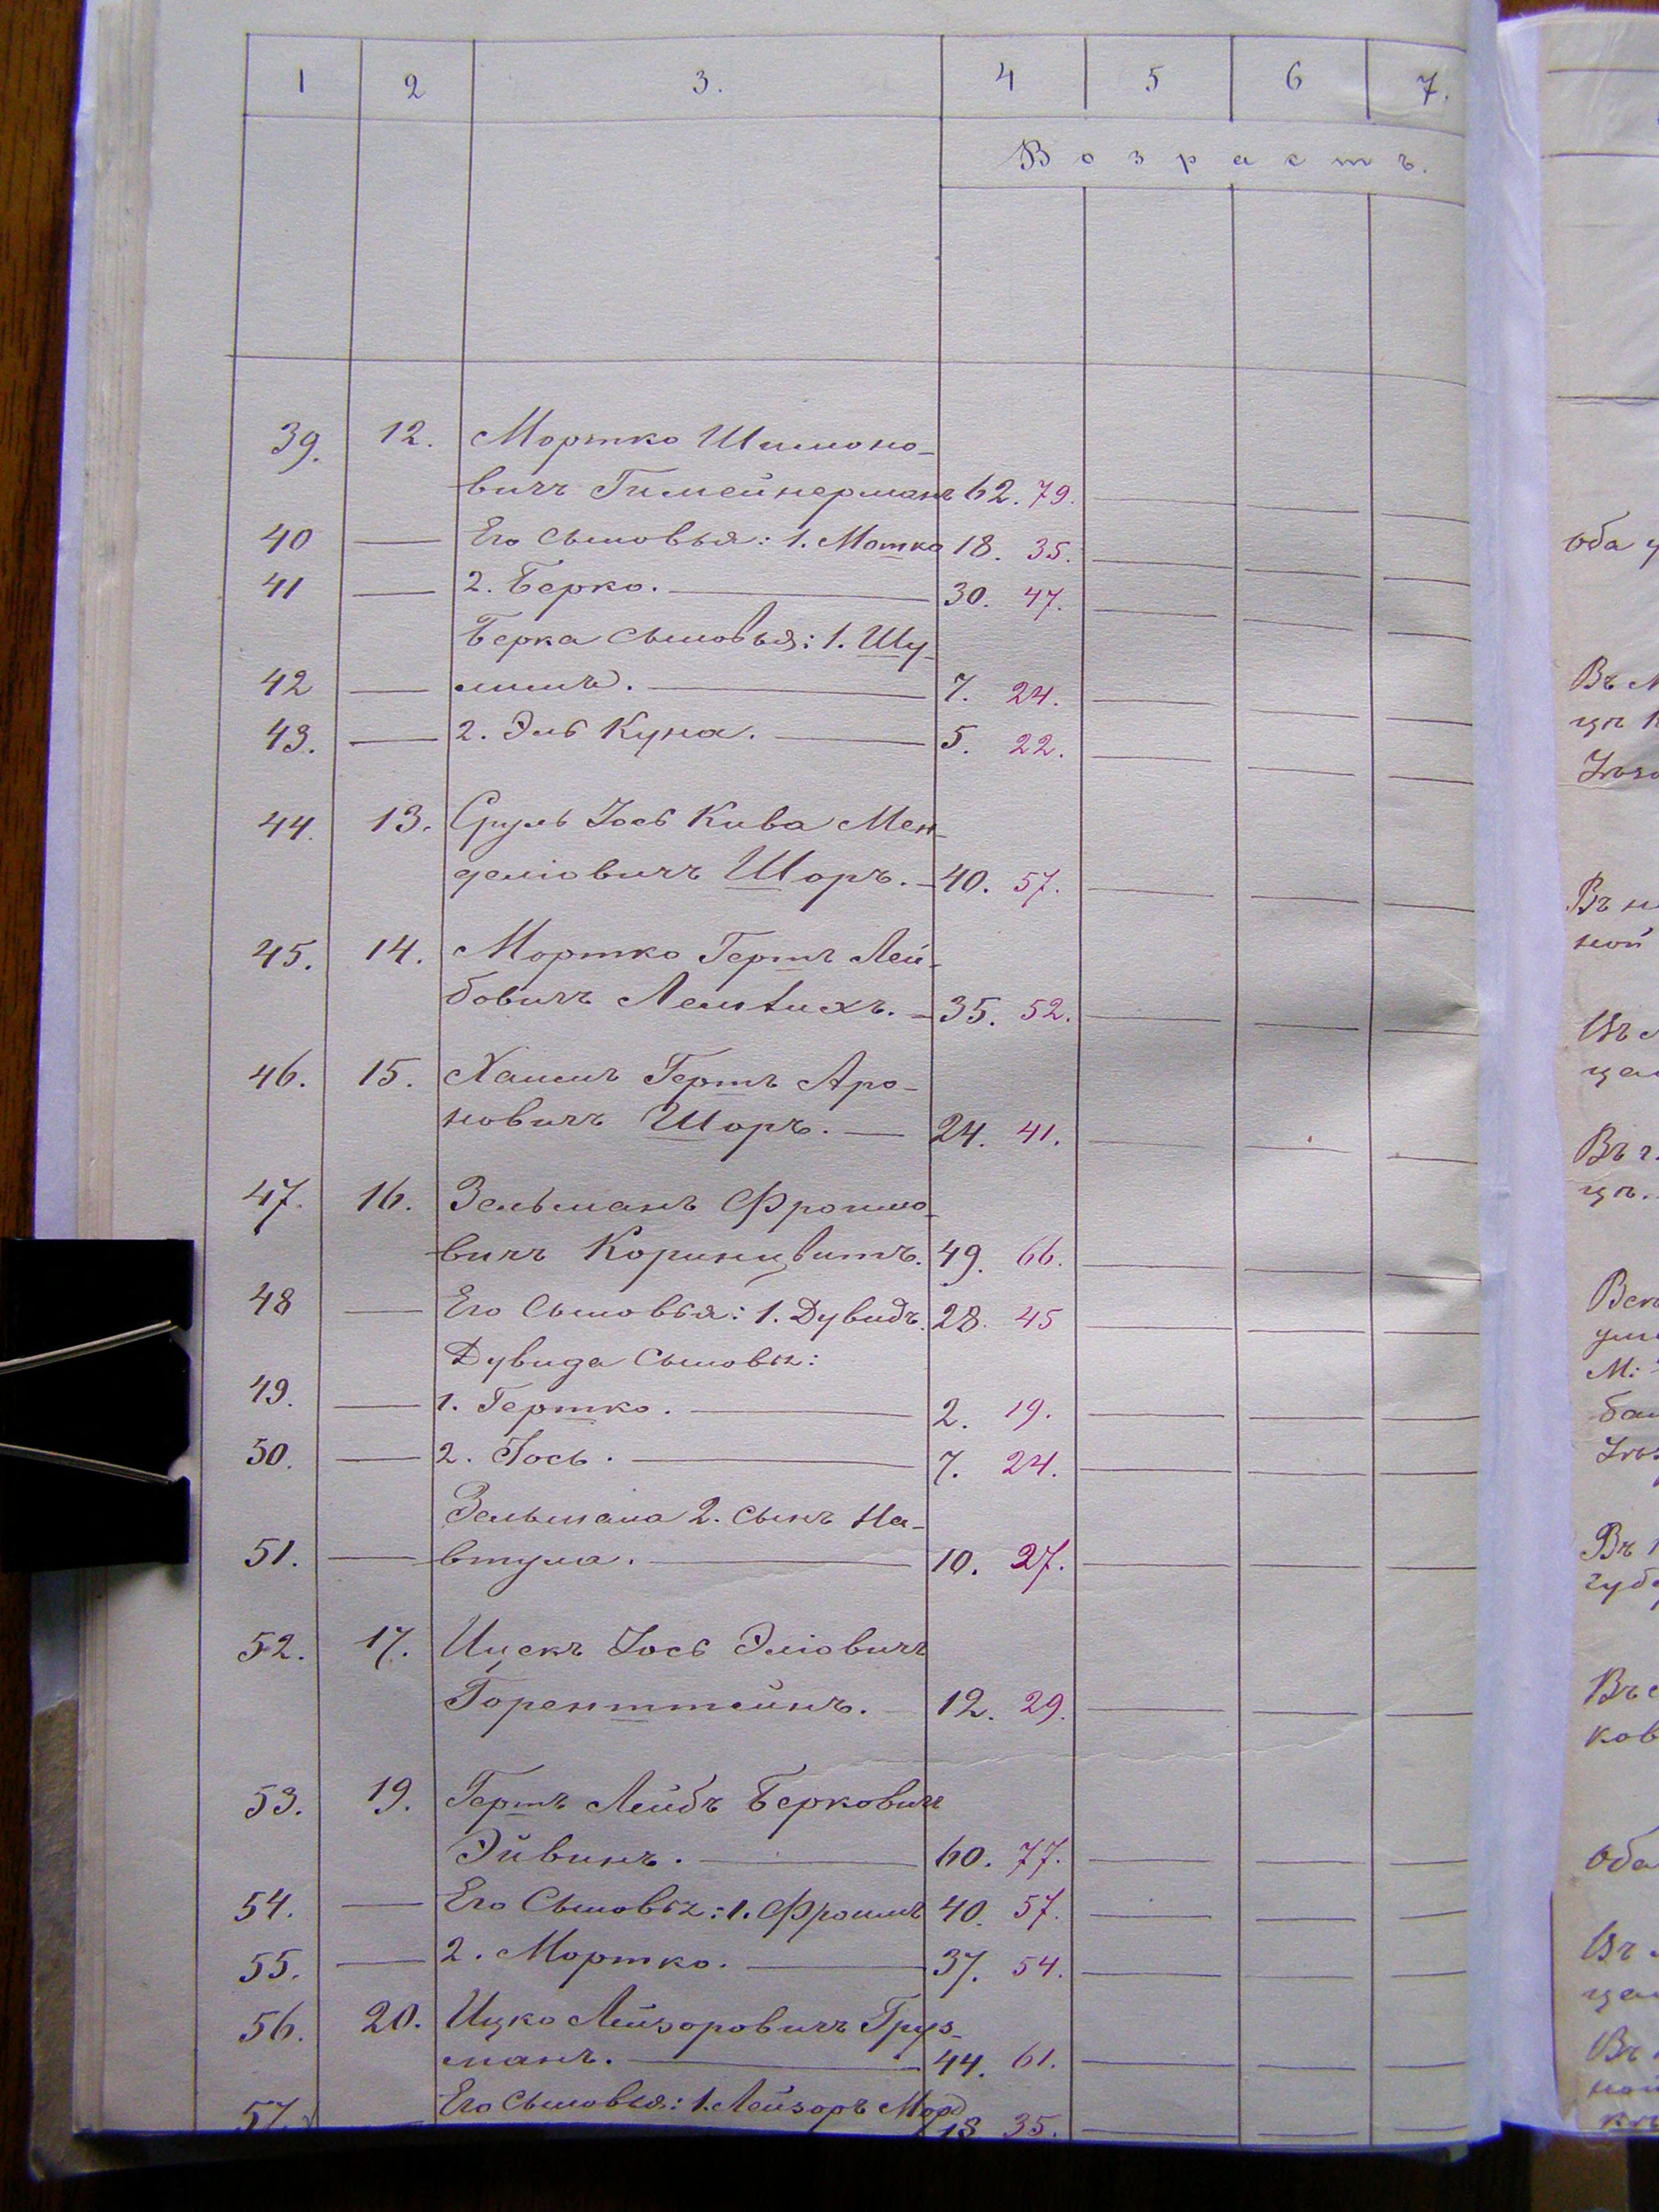 1 2 3. 4 5 6 7.
Возрастъ.
39. 12. Мортко Шимоно-
вичъ Гимейнерманъ 62. 79.
40 — Его сыновья: 1. Матко 18. 35.
41 — 2. Берко. — 30. 47.
Берка сыновья: 1. Шу-
42 — лимъ. — 7. 24.
43. — 2. Эль Куна. — 5. 22.
44. 13. Сруль Іось Кива Мен-
деліовичъ Шоръ. — 40. 57.
45. 14. Мортко Гершъ Лей-
бовичъ — 35. 52.
46. 15. Хаимъ Гершъ Аро-
новичъ Шоръ. — 24. 41.
47. 16. Зельманъ Фроимо-
вичъ 49. 66.
48 — Его Сыновья: 1. Дувидъ. 28. 45
Дувида Сыновья:
49. — 1. Гершко. — 2. 19.
50. — 2. Іось. — 7. 24.
Зельмана 2. сынъ На-
51. — втула. — 10. 27.
52. 17. Ицекъ Іось Эліовичъ
Горенштейнъ. — 12. 29.
53. 19. Гершъ Лейбъ Берковичъ
Эйвинъ. — 60. 77.
54. — Его Сыновья: 1. Фроимъ 40. 57.
55. — 2. Мортко. — 37. 54.
56. 20. Ицко Лейзоровичъ Груз-
манъ. — 44. 61.
57. — Его Сыновья: 1. Лейзоръ Морд
18 35.
оба
Въ
Въ
ной
Изъ
Въ г.
М:
Въ
губ
Въ с
ков
оба
Изъ
Въ
ной